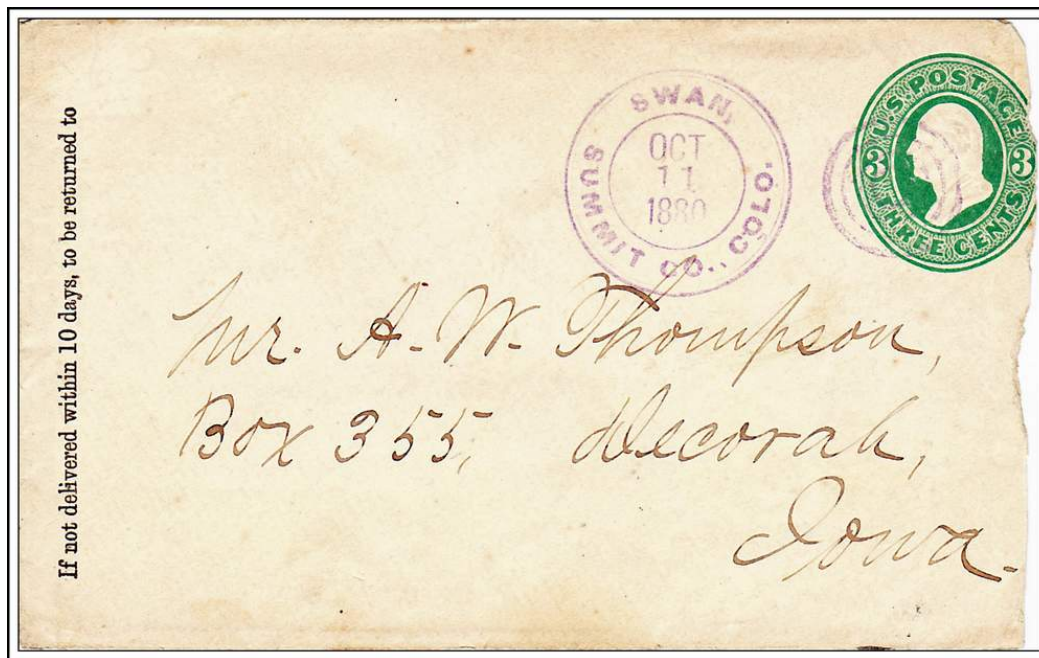 If not delivered within 10 days, to be returned to
SWAN,
OCT
11
1880
SUMMIT CO., COLO.
U.S. POSTAGE
3 3
THREE CENTS
Mr. A. W. Thompson,
Box 355, Decorah,
Iowa.